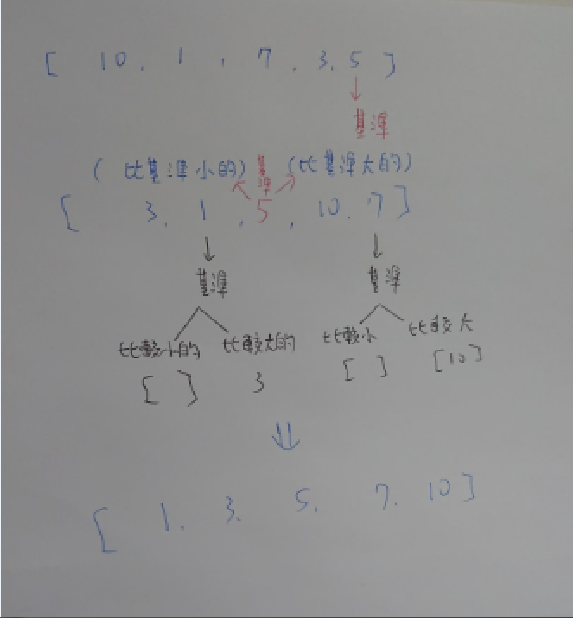 [ 10. 1 , 7 . 3. 5 ]
基準
( 比基準小的) 基準 (比基準大的)
[ 3. 1 . 5 . 10. 7 ]
基準 基準
比較小的 比較大的 比較小 比較大
[ ] 3 [ ] [10]
[ 1. 3. 5. 7. 10 ]